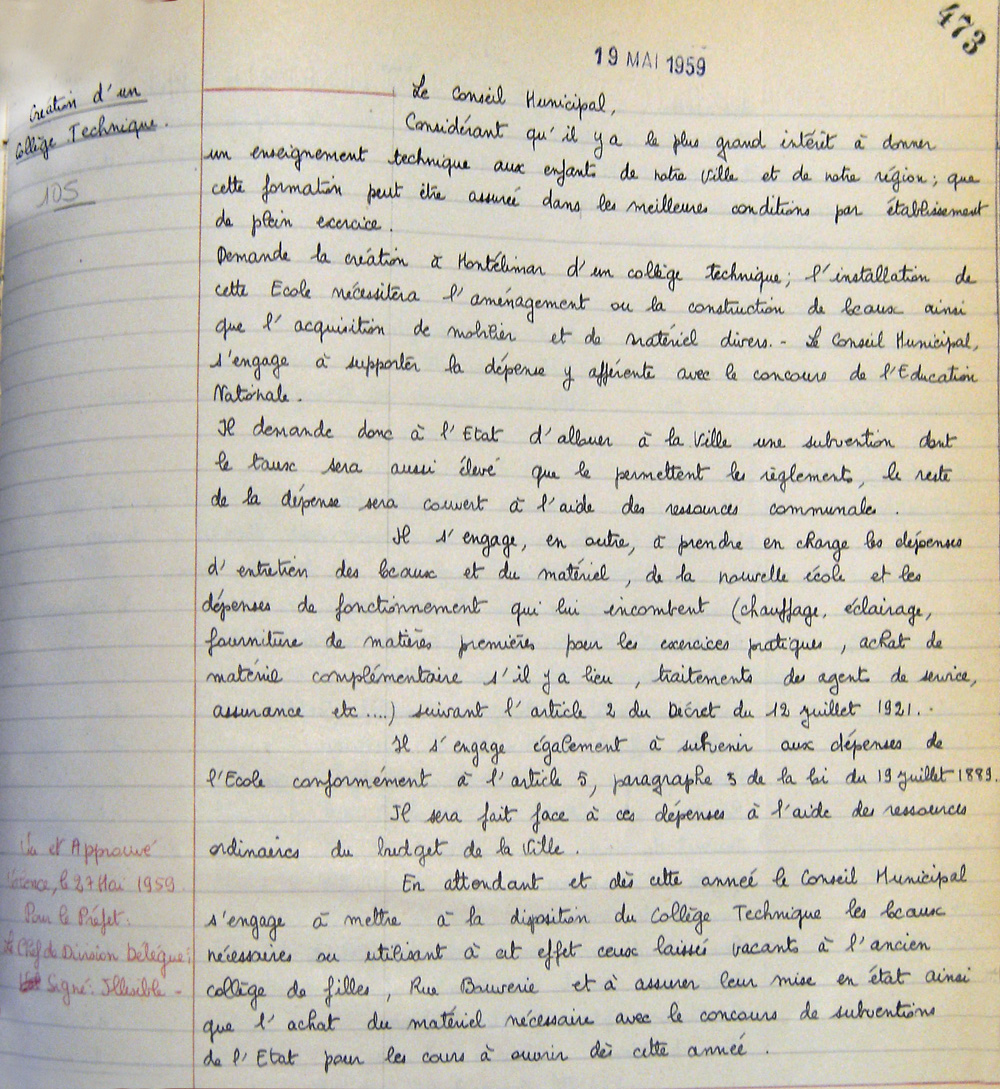 473
19 MAI 1959
Création d'un
Collège Technique.
105
Le Conseil Municipal,
Considérant qu'il y a le plus grand intérêt à donner
un enseignement technique aux enfants de notre Ville et de notre région; que
cette formation peut être assurée dans les meilleures conditions par établissement
de plein exercice.
Demande la création à Montélimar d'un collège technique; l'installation de
cette Ecole nécessitera l'aménagement ou la construction de locaux ainsi
que l'acquisition de mobilier et de matériel divers.- Le Conseil Municipal,
s'engage à supporter la dépense y afférente avec le concours de l'Education
Nationale.
Il demande donc à l'Etat d'allouer à la Ville une subvention dont
le taux sera aussi élevé que le permettent les règlements, le reste
de la dépense sera couvert à l'aide des ressources communales.
Il s'engage, en outre, à prendre en charge les dépenses
d'entretien des locaux et du matériel, de la nouvelle école et les
dépenses de fonctionnement qui lui incombent (chauffage, éclairage,
fourniture de matières premières pour les exercices pratiques, achat de
matériel complémentaire s'il y a lieu, traitements des agents de service,
assurance etc....) suivant l'article 2 du Décret du 12 juillet 1921.-
Il s'engage également à subvenir aux dépenses de
l'Ecole conformément à l'article 5, paragraphe 3 de la loi du 19 juillet 1889.
Il sera fait face à ces dépenses à l'aide des ressources
ordinaires du budget de la Ville.
En attendant et dès cette année le Conseil Municipal
s'engage à mettre à la disposition du Collège Technique les locaux
nécessaires ou utilisant à cet effet ceux laissés vacants à l'ancien
collège de filles, Rue Bouverie et à assurer leur mise en état ainsi
que l'achat du matériel nécessaire avec le concours de subventions
de l'Etat pour les cours à ouvrir dès cette année.
Vu et Approuvé
Valence, le 27 Mai 1959.
Pour le Préfet:
Le Chef de Division Délégué:
Signé: Illisible -